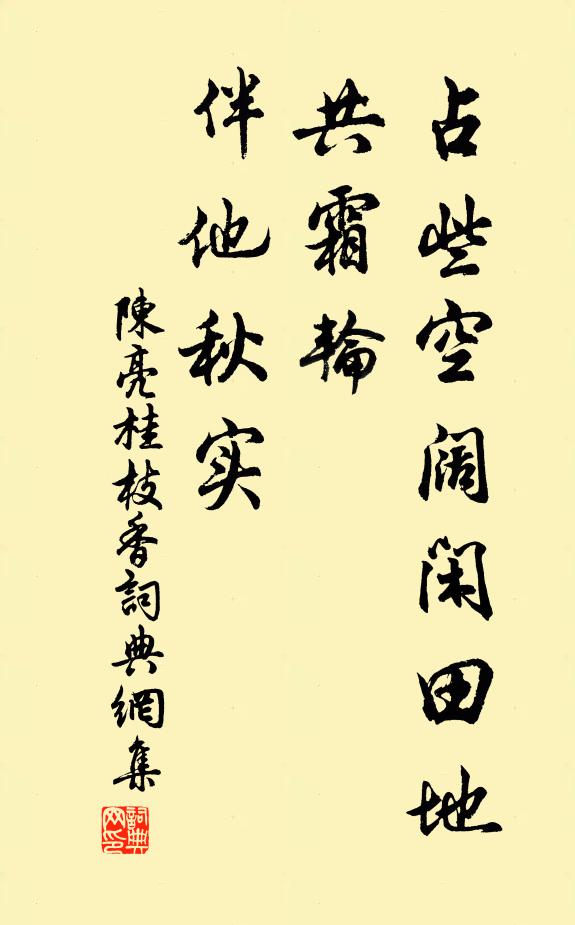 占些空阔闲田地
共霜輪
伴他秋实
陳亮桂枝香詞典網集
詞典网印